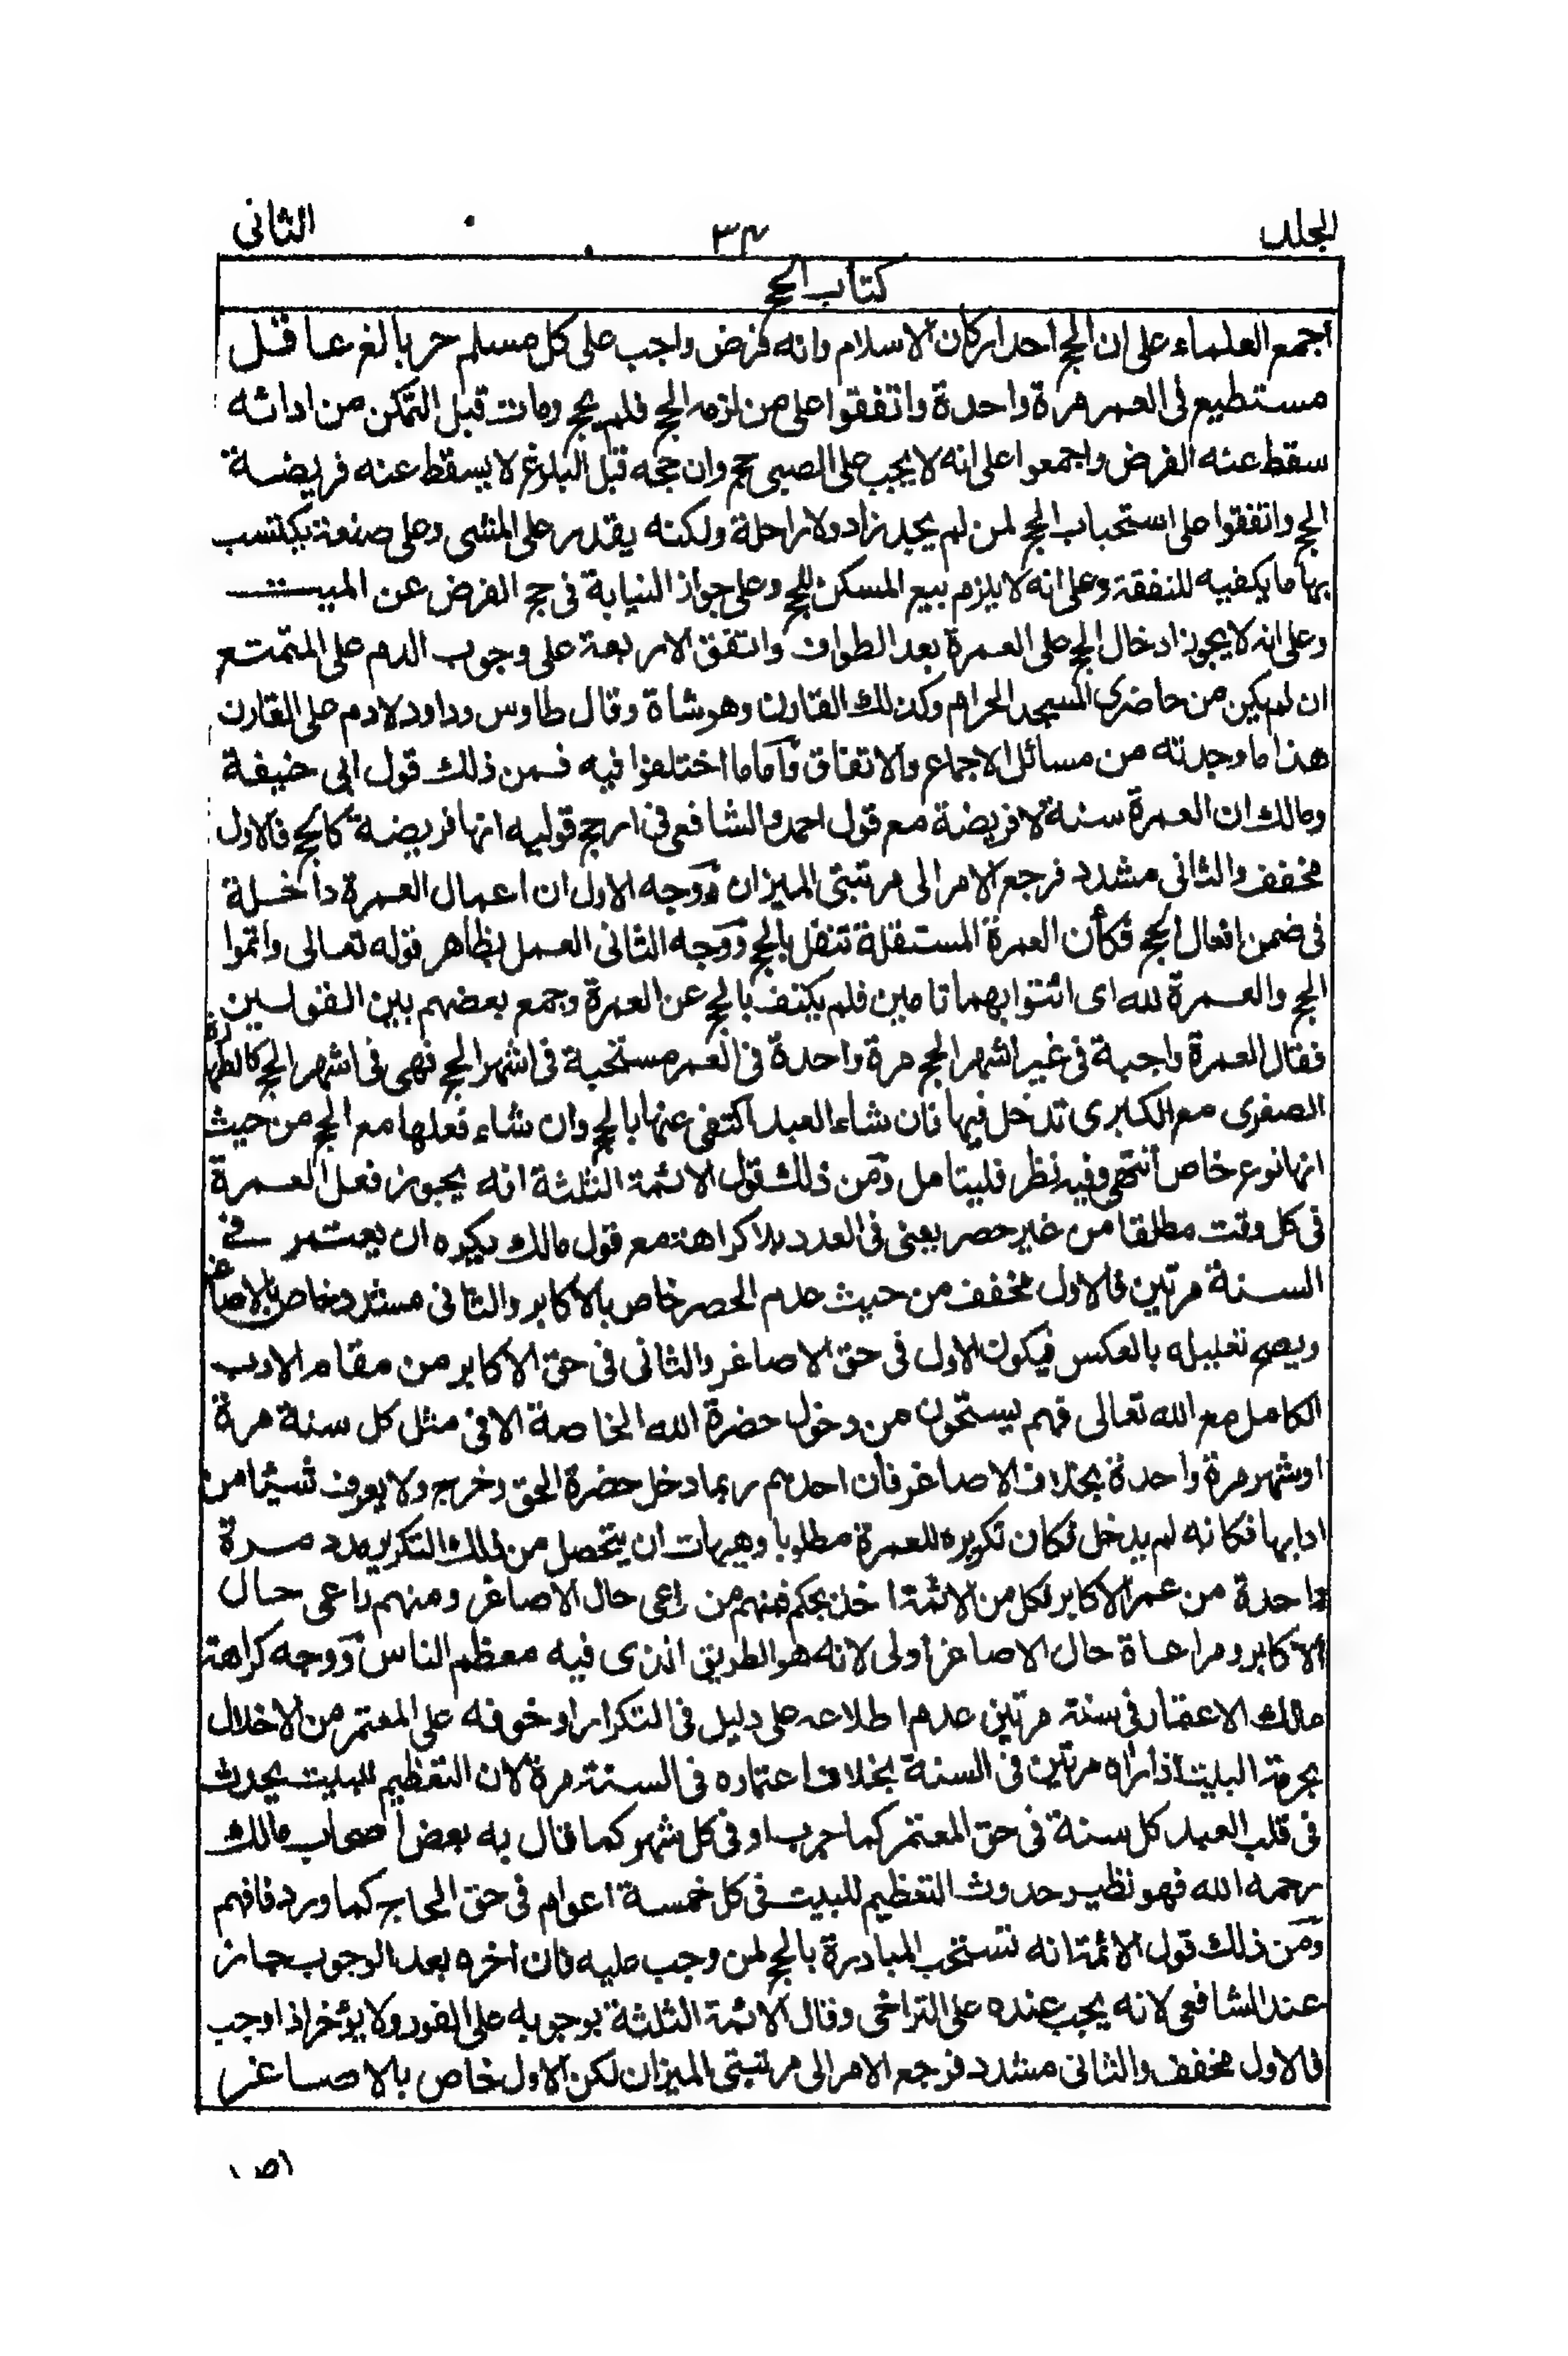 المجلد ٣٤ الثانى
كتاب الحج
اجمع العلماء على ان الحج احد اركان الاسلام وانه فرض واجب على كل مسلم حر بالغ عاقل
مستطيع فى العمر مرة واحدة واتفقوا على من لزمه الحج فلم يحج ومات قبل التمكن من ادائه
سقط عنه الفرض واجمعوا على انه لا يجب على الصبى حج وان حجه قبل البلوغ لا يسقط عنه فريضة
الحج واتفقوا على استحباب الحج لمن لم يجد زاد ولا راحلة ولكنه يقدر على المشى وعلى صنعة يكتسب
بها ما يكفيه للنفقة وعلى انه لا يلزم بيع المسكن للحج وعلى جواز النيابة فى حج الفرض عن الميت
وعلى انه لا يجوز ادخال الحج على العمرة بعد الطواف واتفق الاربعة على وجوب الدم على المتمتع
ان لم يكين من حاضرى المسجد الحرام وكذلك القارن وهو شاة وقال طاوس وداود لا دم على القارن
هذا ما وجدته من مسائل الاجماع والاتفاق وآما ما اختلفوا فيه فمن ذلك قول ابى حنيفة
ومالك ان العمرة سنة لا فريضة مع قول احمد والشافعى فى ارجح قوليه انها فريضة كالحج فالاول
مخفف والثانى مشدد فرجع الامر الى مرتبتى الميزان ووجه الاول ان اعمال العمرة داخلة
فى ضمن افعال الحج فكأن العمرة المستقلة تنفل بالحج ووجه الثانى العمل بظاهر قوله تعالى واتموا
الحج والعمرة لله اى ائتوا بهما تامين فلم يكتف بالحج عن العمرة وجمع بعضهم بين القولين
فقال العمرة واجبة فى غير اشهر الحج مرة واحدة فى العمر مستحبة فى اشهر الحج فهى فى اشهر الحج كالطهارة
الصغرى مع الكبرى تدخل فيها فان شاء العبد اكتفى عنها بالحج وان شاء فعلها مع الحج من حيث
انها نوع خاص انتهى وفيه نظر فليتامل ومن ذلك قول الائمة الثلثة انه يجوز فعل العمرة
فى كل وقت مطلقا من غير حصر يعنى فى العدد بلا كراهة مع قول مالك يكره ان يعتمر فى
السنة مرتين فالاول مخفف من حيث عدم الحصر خاص بالاكابر والثانى مشدد خاص بالاصاغر
ويصح تعليله بالعكس فيكون الاول فى حق الاصاغر والثانى فى حق الاكابر من مقام الادب
الكامل مع الله تعالى فهم يستحون من دخول حضرة الله الخاصة الا فى مثل كل سنة مرة
او شهر مرة واحدة بخلاف الاصاغر فان احدهم ربما دخل حضرة الحق وخرج ولا يعرف شيئا من
ادابها فكانه لم يدخل فكان تكريره للعمرة مطلوبا وهيهات ان يتحصل من ذلك التكرير مدد مرة
واحدة من عمر الاكابر لكل من الائمة اخذ بحكم فمنهم من راعى حال الاصاغر ومنهم راعى حال
الاكابر ومراعاة حال الاصاغر أولى لانه هو الطريق الذى فيه معظم الناس ووجه كراهة
مالك الاعتمار فى سنة مرتين عدم اطلاعه على دليل فى التكرار او خوفه على المعتمر من الاخلال
بحرمة البيت اذا زاه مرتين فى السنة بخلاف اعتماره فى السنة مرة لان التعظيم للبيت يحدث
فى قلب العبد كل سنة فى حق المعتمر كما جرب او فى كل شهر كما قال به بعض أصحاب مالك
رحمه الله فهو نظير حدوث التعظيم للبيت فى كل خمسة اعوام فى حق الحاج كما ورد فافهم
ومن ذلك قول الائمة انه تستحب المبادرة بالحج لمن وجب عليه فان اخره بعد الوجوب جاز
عند الشافعى لانه يجب عنده على التراخى وقال الائمة الثلثة بوجوبه على الفور ولا يؤخر اذا وجب
فالاول مخفف والثانى مشدد فرجع الامر الى مرتبتى الميزان لكن الاول خاص بالاصاغر